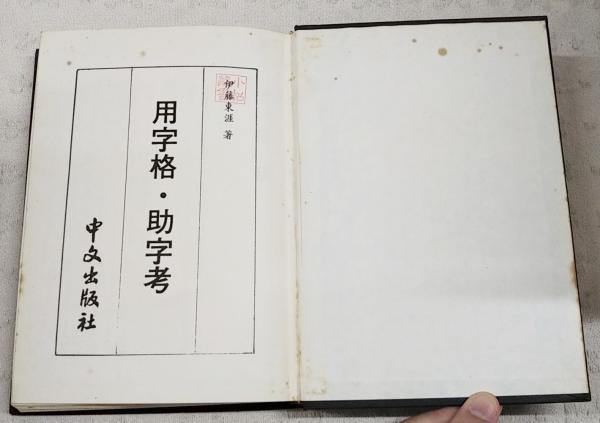 伊藤東涯 著
用字格・助字考
中文出版社